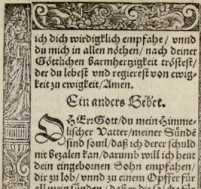 ich dich wirdigklich empfahe / vnnd
du mich in allen nöthen / nach deiner
Göttlichen barmhertzigkeit tröstest /
der du lebest vnd regierest von ewig-
keit zu ewigkeit / Amen.
Ein anders Gebet.
O HErr Gott / du mein Himme-
lischer Vatter / meiner Sünde
sind souil / daß ich derer schuld
nit bezalen kan / darumb will ich heut
dein eingebornen Sohn empfahen /
dir zu lob / vnnd zu einem Opffer für